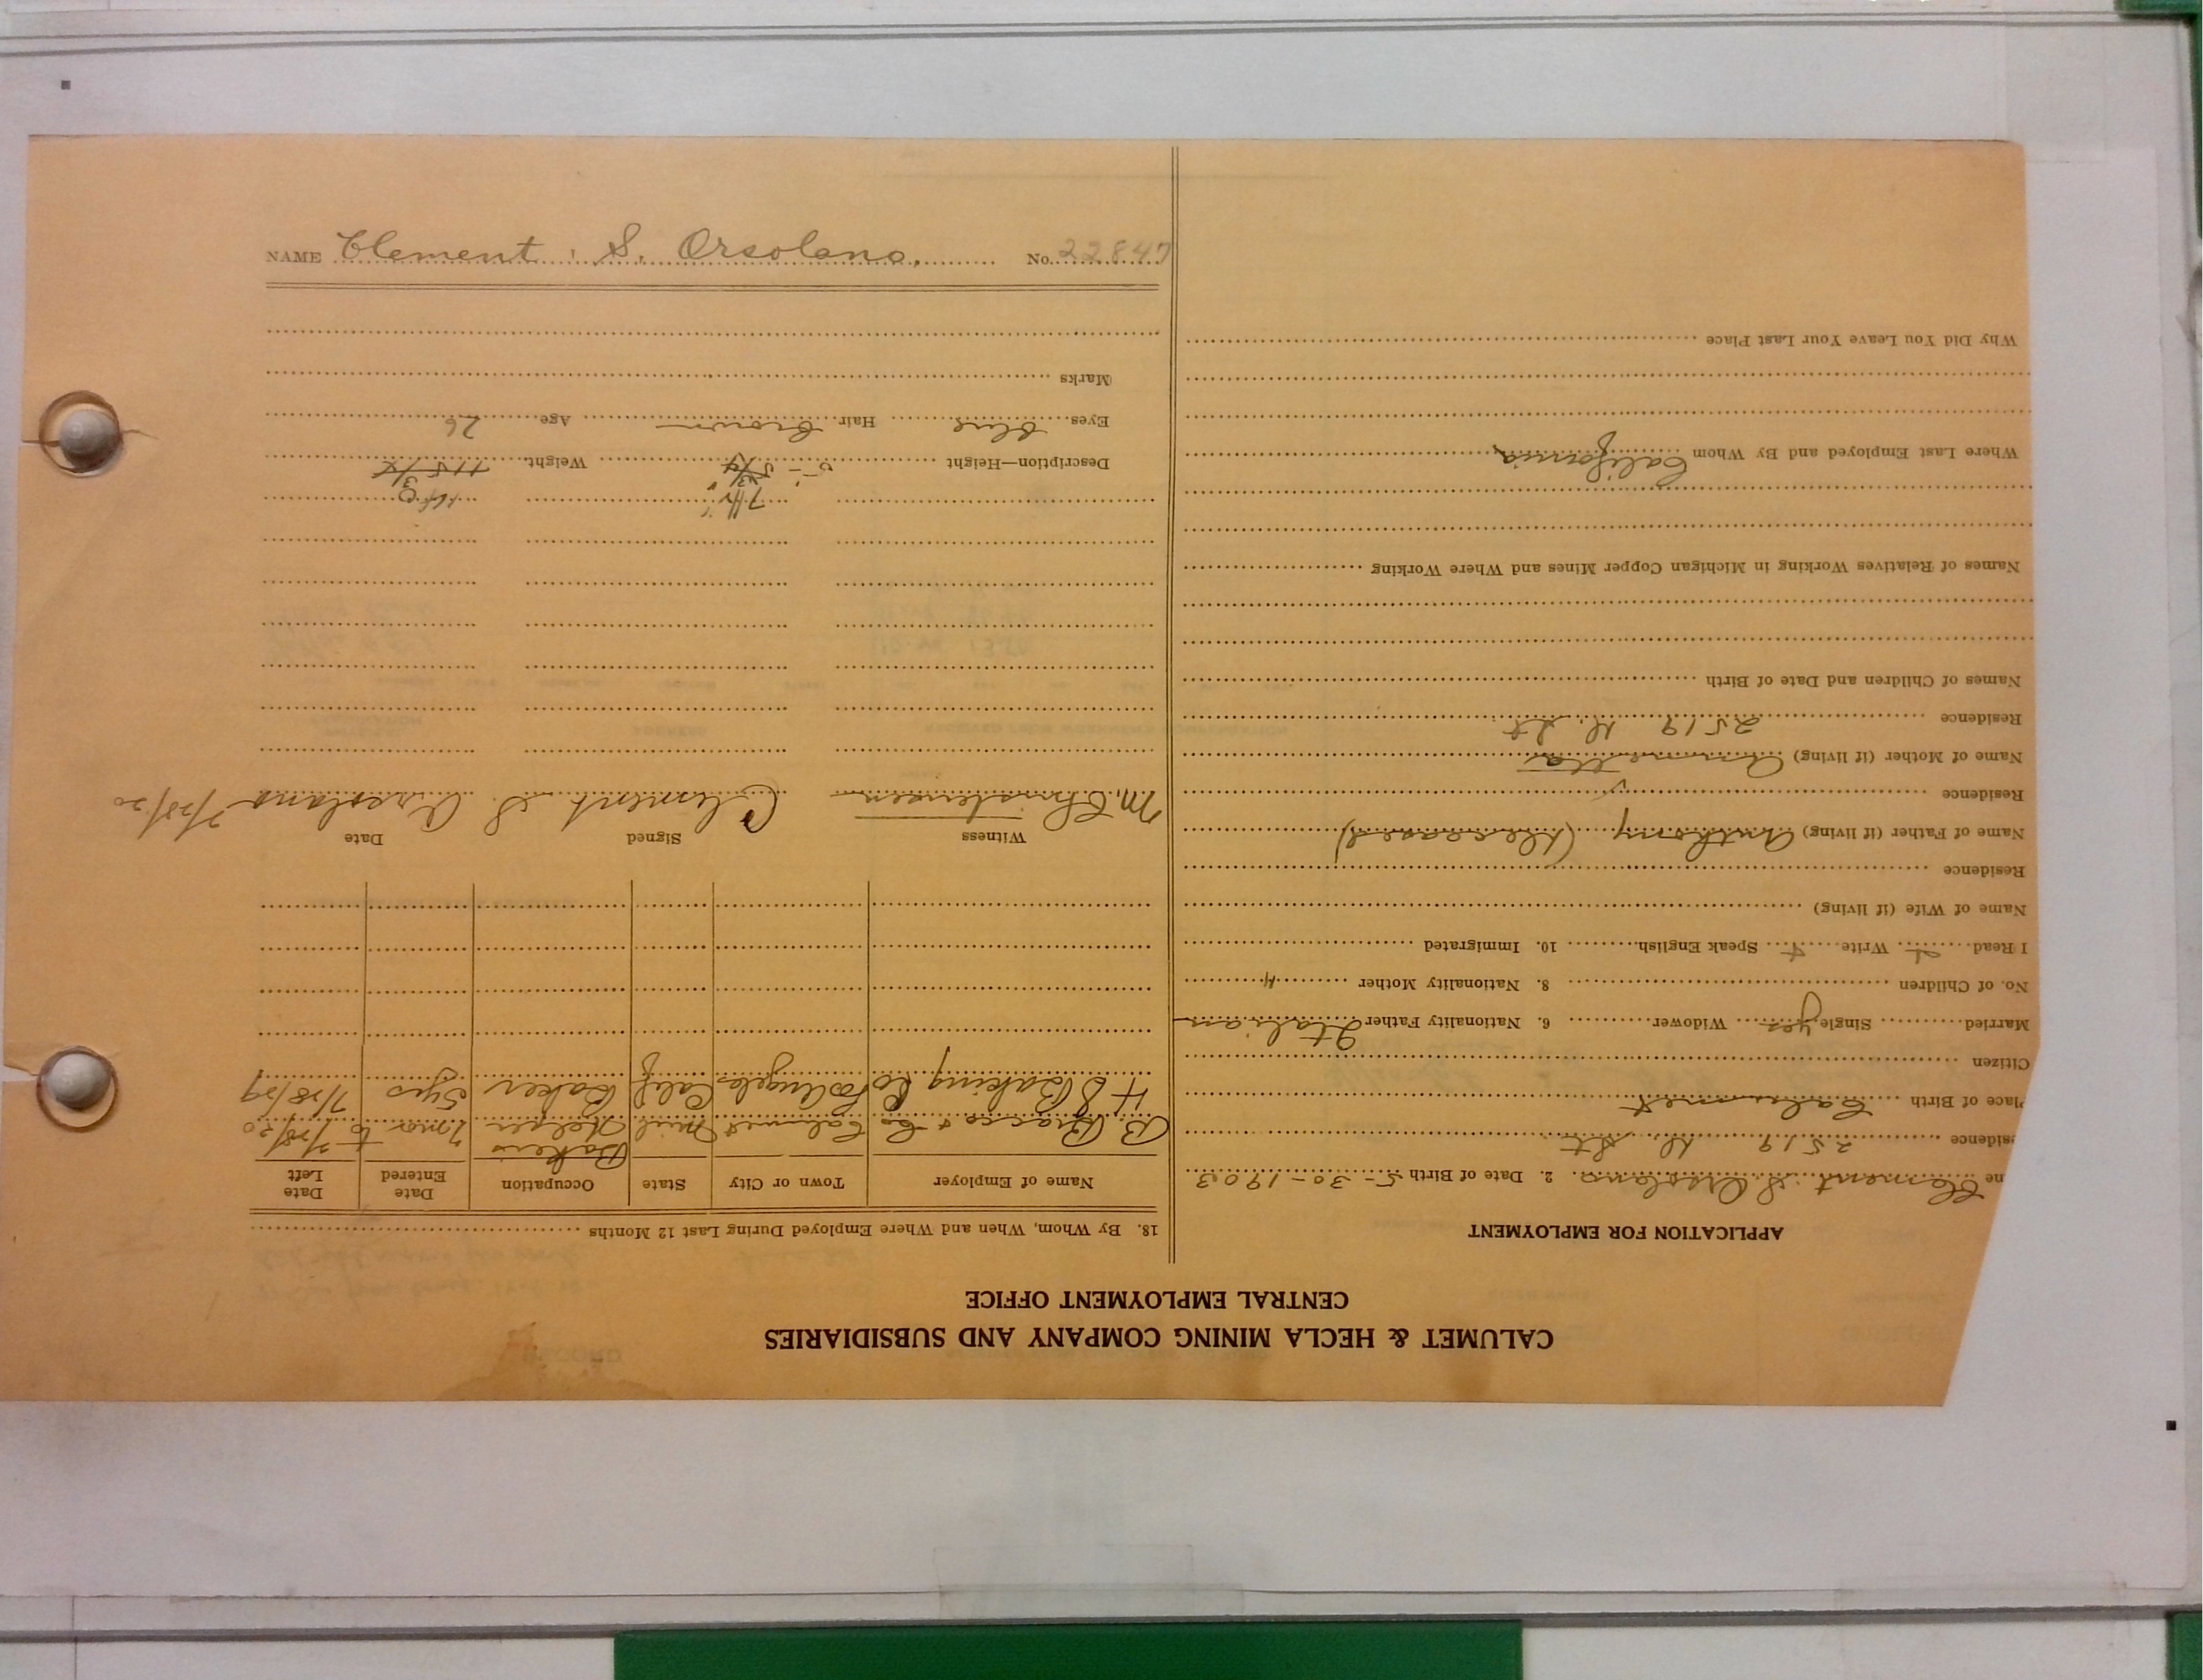 NAME Clement S. Orsolano. No. 22847
CALUMET & HECLA MINING COMPANY AND SUBSIDIARIES
CENTRAL EMPLOYMENT OFFICE
APPLICATION FOR EMPLOYMENT
me Clement S. Orsolano. 2. Date of Birth 5-30-1903
sidence 2519 St
Place of Birth Calumet
Citizen
Married Single yes Widower 6. Nationality Father Italian
No. of Children 8. Nationality Mother "
I Read Write Speak English 10. Immigrated
Name of Wife (if living)
Residence
Name of Father (if living) Anthony (deceased)
Residence
Name of Mother (if living)
Residence 2519 St
Names of Children and Date of Birth
Names of Relatives Working in Michigan Copper Mines and Where Working
Where Last Employed and By Whom California
Why Did You Leave Your Last Place
18. By Whom, When and Where Employed During Last 12 Months
Name of Employer Town or City State Occupation Date Entered Date Left
B. Bracco & Co Calumet Mich Bakers Helper 7 mos to 7/28/30
H S Baking Co Los Angeles Calif Baker 5 yrs 7/28/29
Witness Signed Date
M. Christensen Clement S. Orsolano 7/28/30
Description—Height Weight
Eyes blue Hair Brown Age 26
Marks